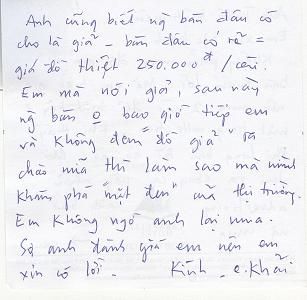 Anh cũng biết ng bán đâu có
cho là giả – bán đâu có rẽ =
giá đồ thiệt 250.000đ / cái.
Em mà nói giả, sau này
ng bán o bao giờ tiếp em
và không đem "đồ giả" ra
chào nữa thì làm sao mà mình
khám phá "mặt đen" của thị trường.
Em không ngờ anh lại mua.
Sợ anh đánh giá em nên em
xin có lời. Kính. e. Khải